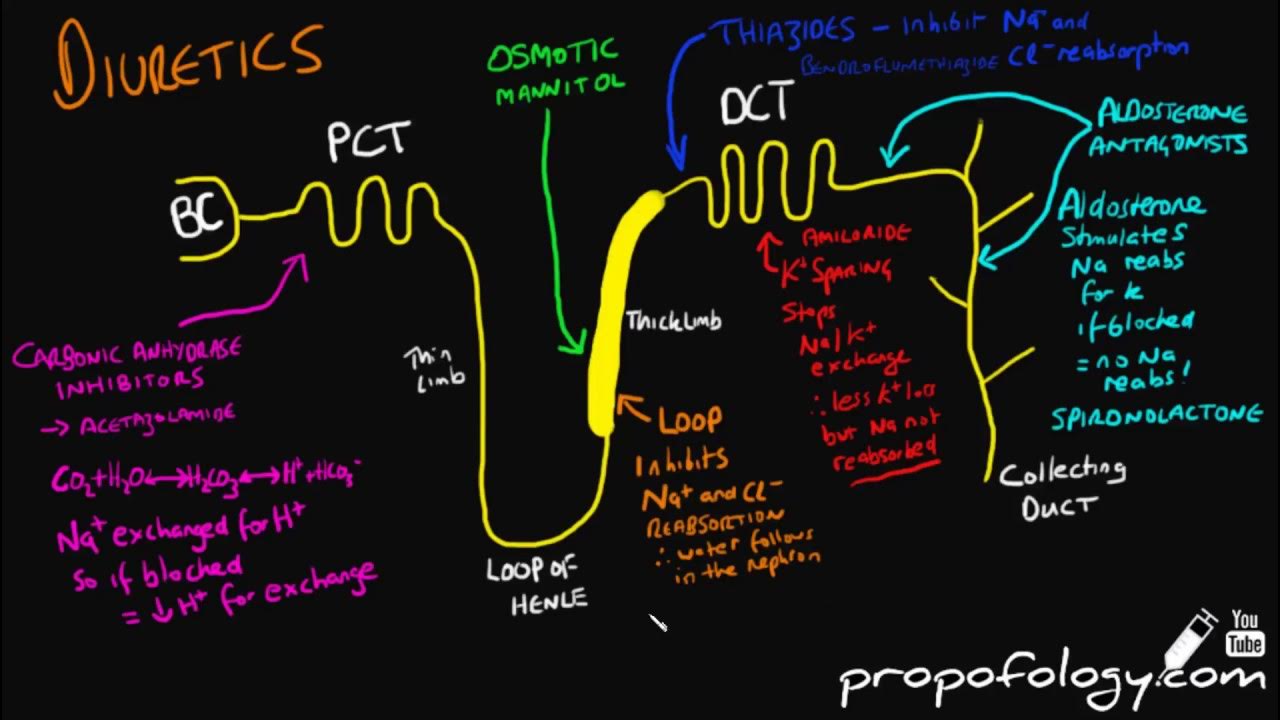 DIURETICS
OSMOTIC
MANNITOL
THIAZIDES – Inhibit Na+ and
BENDROFLUMETHIAZIDE Cl- reabsorption
PCT
DCT
BC
ALDOSTERONE
ANTAGONISTS
Aldosterone
Stimulates
Na reabs
for K
if blocked
= no Na
reabs!
SPIRONOLACTONE
AMILORIDE
K+ SPARING
Stops
Na/K+
exchange
∴ less K+ loss
but Na not
reabsorbed
Thick Limb
Thin
Limb
CARBONIC ANHYDRASE
INHIBITORS
→ ACETAZOLAMIDE
CO2+H2O↔H2CO3↔H++HCO3-
Na+ exchanged for H+
so if blocked
= ↓ H+ for exchange
LOOP
Inhibits
Na+ and Cl-
REABSORTION
∴ water follows
in the nephron
LOOP OF
HENLE
Collecting
DUCT
You
Tube
propofology.com